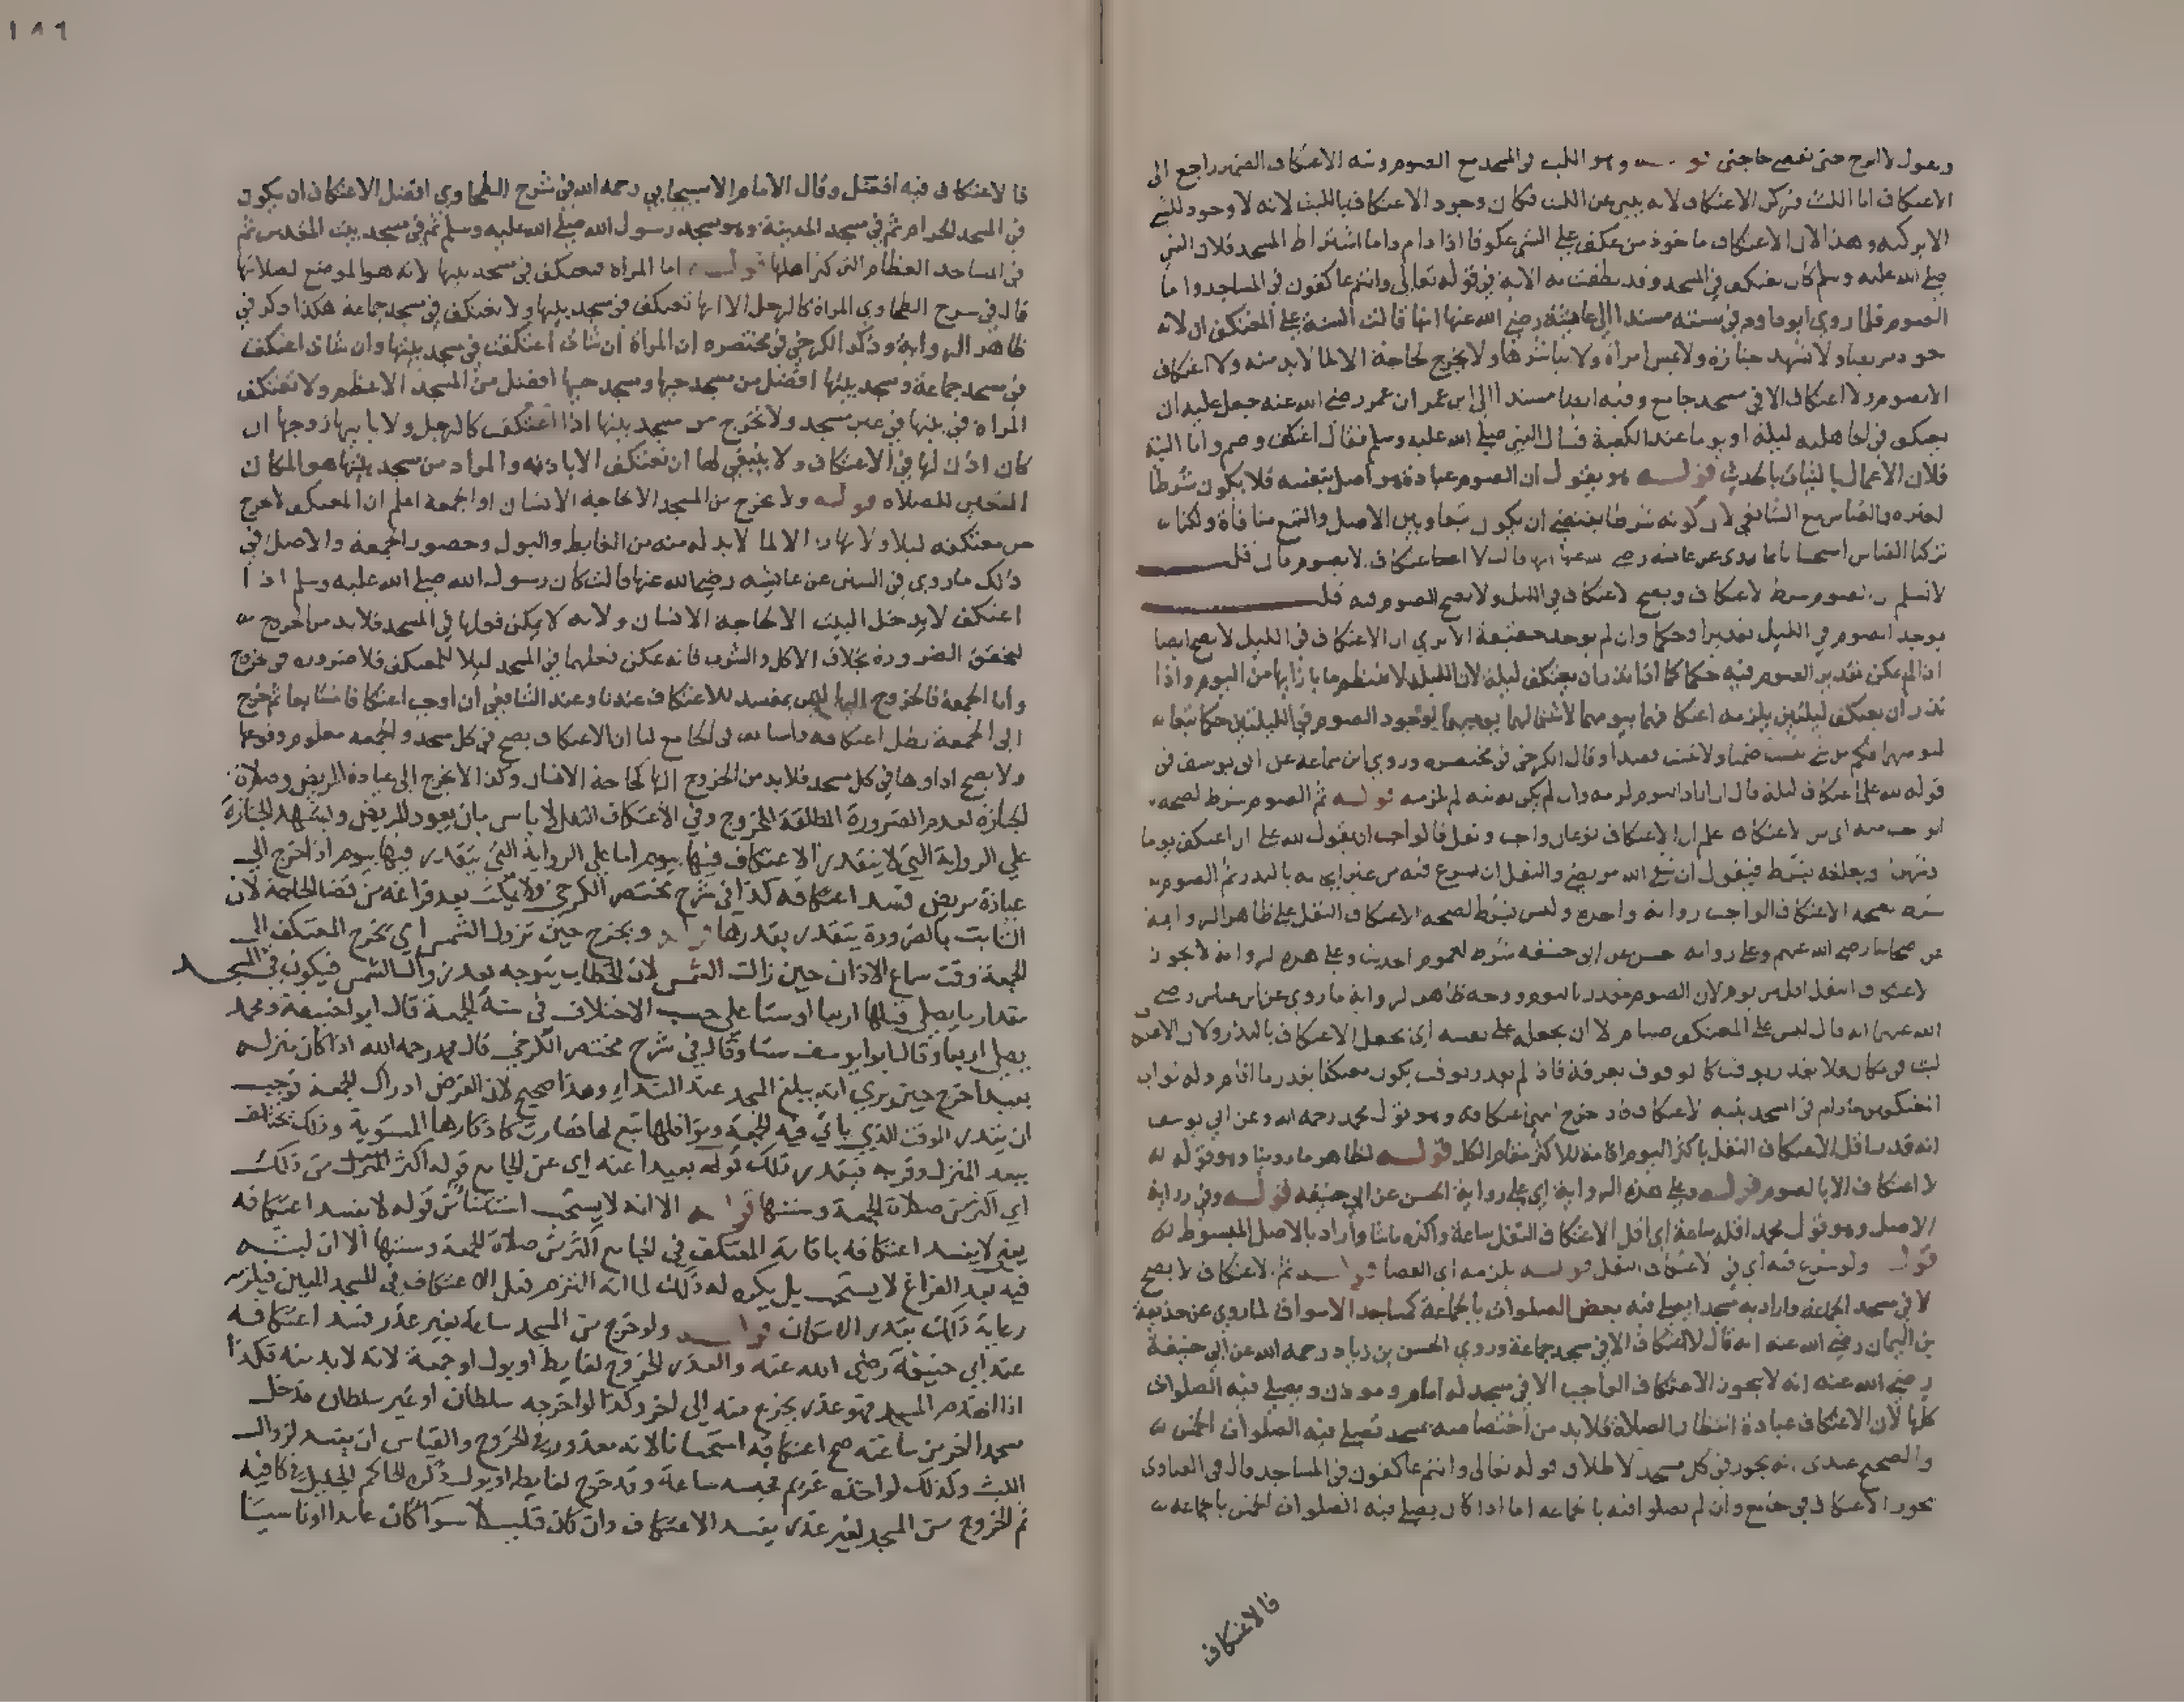 ويقول لا اخرج حتى تقضي حاجتي قوله وهو اللبث في المسجد مع الصوم ونية الاعتكاف الضمير راجع الى
الاعتكاف اما اللبث فركن الاعتكاف لانه ينبي عن اللبث فكان وجود الاعتكاف باللبث لانه لا وجود للشي
الا بركنه وهذا لان الاعتكاف ماخوذ من عكف على الشي عكوفا اذا دام واما اشتراط المسجد فلان النبي
صلى الله عليه وسلم كان يعتكف في المسجد وقد نطقت به الاية في قوله تعالى وانتم عاكفون في المساجد واما
الصوم فلما روى ابو داود في سننه مسندا الى عائشة رضي الله عنها انها قالت السنة على المعتكف ان لا
يعود مريضا ولا يشهد جنازة ولا يمس امراة ولا يباشرها ولا يخرج لحاجة الا لما لا بد منه ولا اعتكاف
الا بصوم ولا اعتكاف الا في مسجد جامع وفيه ايضا مسندا الى ابن عمر ان عمر رضي الله عنه جعل عليه ان
يعتكف في الجاهلية ليلة او يوما عند الكعبة فسال النبي صلى الله عليه وسلم فقال اعتكف وصم واما النية
فلان الاعمال بالنيات بالحديث قوله هو يقول ان الصوم عبادة هو اصل بنفسه فلا يكون شرطا
لغيره والقياس مع الشافعي لان كونه شرطا يقتضي ان يكون تبعا وبين الاصل والتبع منافاة ولكنا
تركنا القياس استحسانا بما روي عن عائشة رضي الله عنها انها قالت لا اعتكاف الا بصوم فان قلت
لا نسلم ان الصوم شرط الاعتكاف ويصح الاعتكاف في الليل ولا يصح الصوم فيه قلت
يوجد الصوم في الليل تقديرا وحكما وان لم يوجد حقيقة الا ترى ان الاعتكاف في الليل لا يصح ايضا
اذا لم يمكن تقدير الصوم فيه حكما كما اذا نذر ان يعتكف ليلة لان الليلة لا تنتظم ما بازايها من اليوم واذا
نذر ان يعتكف ليلتين يلزمه اعتكافهما بيومهما لاشتمالهما يوميهما لوجود الصوم في الليلتين حكما تبعا
ليوميهما فكم من شي يثبت ضمنا ولا يثبت قصدا وقال الكرخي في مختصره وروى ابن سماعة عن ابي يوسف في
قوله لله علي اعتكاف ليلة قال ان اراد اليوم لزمه وان لم يكن له نية لم يلزمه قوله ثم الصوم شرط لصحة
الواجب منه اي من الاعتكاف اعلم ان الاعتكاف نوعان واجب ونفل فالواجب ان يقول لله علي ان اعتكف يوما
وشهرا ويعلقه بشرط فيقول ان شفى الله مريضي والنفل ان يشرع فيه من غير ايجابه بالنذر ثم الصوم
شرط لصحة الاعتكاف الواجب رواية واحدة وليس بشرط لصحة الاعتكاف النفل على ظاهر الرواية
عن اصحابنا رضي الله عنهم وعلى رواية حسن عن ابي حنيفة شرط لعموم الحديث وعلى هذه الرواية لا يجوز
الاعتكاف النفل اقل من يوم لان الصوم مقدر باليوم ووجه ظاهر الرواية ما روي عن ابن عباس رضي
الله عنهما انه قال ليس على المعتكف صيام الا ان يجعله على نفسه اي يجعل الاعتكاف بالنذر ولان الاعتكاف
لبث في مكان فلا يقدر بوقت كالوقوف بعرفة فاذا لم يقدر بوقت يكون معتكفا بقدر ما اقام وله ثواب
المعتكفين ما دام في المسجد بنية الاعتكاف فاذا خرج انتهى اعتكافه وهو قول محمد رحمه الله وعن ابي يوسف
انه قدر اقل الاعتكاف النفل باكثر اليوم اقامة للاكثر مقام الكل قوله لظاهر ما روينا وهو قوله
لا اعتكاف الا بالصوم قوله وعلى هذه الرواية اي على رواية الحسن عن ابي حنيفة قوله وفي رواية
الاصل وهو قول محمد اقله ساعة اي اقل الاعتكاف النفل ساعة واكثره ما شا واراد بالاصل المبسوط
قوله ولو شرع فيه اي في الاعتكاف النفل قوله يلزمه اي القضا قوله ثم الاعتكاف لا يصح
الا في مسجد الجماعة واراد به مسجدا يصلى فيه بعض الصلوات بالجماعة كمساجد الاسواق لما روي عن حذيفة
بن اليمان رضي الله عنه انه قال لا اعتكاف الا في مسجد جماعة وروى الحسن بن زياد رحمه الله عن ابي حنيفة
رضي الله عنه انه لا يجوز الاعتكاف الواجب الا في مسجد له امام وموذن ويصلى فيه الصلوات
كلها لان الاعتكاف عبادة انتظار الصلاة فلا بد من اختصاصه بمسجد تصلى فيه الصلوات الخمس
والصحيح عندي انه يجوز في كل مسجد لاطلاق قوله تعالى وانتم عاكفون في المساجد وقال في الفتاوى
يجوز الاعتكاف في الجامع وان لم يصلوا فيه بالجماعة اما اذا كان يصلى فيه الصلوات الخمس بالجماعة
فالاعتكاف
١٨٦
فالاعتكاف فيه افضل وقال الامام الاسبيجابي رحمه الله في شرح الطحاوي افضل الاعتكاف ان يكون
في المسجد الحرام ثم في مسجد المدينة وهو مسجد رسول الله صلى الله عليه وسلم ثم في مسجد بيت المقدس ثم
في المساجد العظام التي كثر اهلها قوله اما المراة فتعتكف في مسجد بيتها لانه هو الموضع لصلاتها
قال في شرح الطحاوي المراة كالرجل الا انها تعتكف في مسجد بيتها ولا تعتكف في مسجد جماعة هكذا ذكر في
ظاهر الرواية وذكر الكرخي في مختصره ان المراة ان شات اعتكفت في مسجد بيتها وان شات اعتكفت
في مسجد جماعة ومسجد بيتها افضل من مسجد حيها ومسجد حيها افضل من المسجد الاعظم ولا تعتكف
المراة في بيتها في غير مسجد ولا تخرج من مسجد بيتها اذا اعتكفت كالرجل ولا ياتيها زوجها ان
كان اذن لها في الاعتكاف ولا ينبغي لها ان تعتكف الا باذنه والمراد من مسجد بيتها هو المكان
المتعين للصلاة قوله ولا يخرج من المسجد الا لحاجة الانسان او الجمعة اعلم ان المعتكف لا يخرج
من معتكفه ليلا ولا نهارا الا لما لا بد له منه من الغايط والبول وحضور الجمعة والاصل في
ذلك ما روي في السنن عن عايشة رضي الله عنها قالت كان رسول الله صلى الله عليه وسلم اذا
اعتكف لا يدخل البيت الا لحاجة الانسان ولانه لا يمكن فعلها في المسجد فلا بد من الخروج
لتحقق الضرورة بخلاف الاكل والشرب فانه يمكن فعلهما في المسجد ليلا للمعتكف فلا ضرورة في خروج
واما الجمعة فالخروج اليها ليس بمفسد للاعتكاف عندنا وعند الشافعي ان اوجب اعتكافا متتابعا ثم خرج
الى الجمعة بطل اعتكافه واما في الجامع لنا ان الاعتكاف يصح في كل مسجد والجمعة معلوم وقوعها
ولا يصح اداوها في كل مسجد فلا بد من الخروج اليها كحاجة الانسان وكذا لا يخرج الى عيادة المريض وصلاة
الجنازة لعدم الضرورة المطلقة للخروج وفي الاعتكاف النفل لا باس بان يعود المريض ويشهد الجنازة
على الرواية التي لا يتقدر الاعتكاف فيها بيوم اما على الرواية التي يتقدر فيها بيوم اذا خرج الى
عيادة مريض فسد اعتكافه كذا في شرح مختصر الكرخي ولا يمكث بعد فراغه من قضا الحاجة لان
الثابت بالضرورة يتقدر بقدرها قوله ويخرج حين تزول الشمس اي يخرج المعتكف الى
الجمعة وقت سماع الاذان حين زالت الشمس لان الخطاب يتوجه بعد زوال الشمس فيكون في المسجد
مقدار ما يصلي قبلها اربعا او ستا على حسب الاختلاف في سنة الجمعة قال ابو حنيفة ومحمد
يصلي اربعا وقال ابو يوسف ستا وقال في شرح مختصر الكرخي قال محمد رحمه الله اذا كان منزله
بعيدا خرج حين يرى انه يبلغ المسجد عند النداء وهذا صحيح لان الفرض ادراك الجمعة فوجب
ان يتقدر الوقت الذي ياتي فيه الجمعة ونوافلها تبع لها فصارت كاذكارها المسنونة وذلك يختلف
ببعد المنزل وقربه فيقدر ذلك قوله بعيدا عنه اي عن الجامع قوله اكثر من ذلك
اي اكثر من صلاة الجمعة وسنتها قوله الا انه لا يستحب استثنا من قوله لا يفسد اعتكافه
يعني لا يفسد اعتكافه باقامة المعتكف في الجامع اكثر من صلاة الجمعة وسنتها الا ان لبثه
فيه بعد الفراغ لا يستحب بل يكره له ذلك لما انه التزم فعل الاعتكاف في المسجد المعين فيلزمه
رعاية ذلك بقدر الامكان قوله ولو خرج من المسجد ساعة بغير عذر فسد اعتكافه
عند ابي حنيفة رضي الله عنه والعذر الخروج لغايط او بول او جمعة لانه لا بد منه فكذا
اذا انهدم المسجد فهو عذر يخرج منه الى اخر وكذا لو اخرجه سلطان او غير سلطان فدخل
مسجدا اخر من ساعته صح اعتكافه استحسانا لانه معذور في الخروج والقياس ان يفسد لزوال
اللبث وكذلك لو اخذه غريم فحبسه ساعة وقد خرج لغايط او بول ذكره الحاكم الجليل في كافيه
ثم الخروج من المسجد لغير عذر يفسد الاعتكاف وان كان قليلا سوا كان عامدا او ناسيا